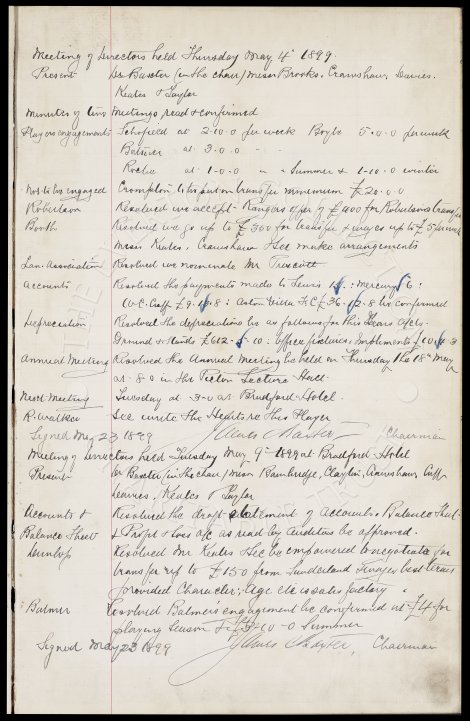 Meeting of Directors held Thursday May 4th 1899.
Present Dr Baxter (in the chair) Messrs Brooks, Crawshaw, Davies.
Keates & Taylor
Minutes of two Meetings read & confirmed
Players engagements Schofield at 2-10-0 per week Boyle 5.0.0 per week
Balmer at 3.0.0 " "
Roche at 1-0-0 " " Summer & 1-10-0 winter
Not to be engaged Crompton to be put on transfer minimum £20.0.0
Robertson Resolved we accept Rangers offer of £400 for Robertsons transfer
Booth Resolved we go up to £300 for transfer & wages up to £5 per week
Messrs Keates, Crawshaw & Sec make arrangements
Lan. Association Resolved we nominate Mr Trescott
Accounts Resolved the payments made to Lewis : Mercury 6:
W.C. Cuff £9. .8 : Aston Villa F.C £36. .8 be confirmed
Depreciation Resolved the depreciations be as follows for this Years a/cs.
Ground & Stands £602. .10: Office fixtures. Implements £10. .3
Annual Meeting Resolved the Annual Meeting be held on Thursday the 18th May
at 8-0 in the Picton Lecture Hall
Next Meeting Tuesday at 3-0 at Bradford Hotel.
R. Walker Sec write the Hearts re this Player
Signed May 23 1899 James Baxter Chairman
Meeting of Directors held Tuesday May 9th 1899 at Bradford Hotel
Present Dr Baxter (in the chair) Messrs Bainbridge, Clayton, Crawshaw, Cuff
Davies, Keates & Taylor
Accounts & Resolved the draft statement of Accounts & Balance Sheet
Balance Sheet & Profit & Loss a/c as read by Auditors be approved.
Dunlop Resolved Mr Keates & Sec be empowered to negotiate for
transfer up to £150 from Sunderland & wages best terms
provided Character: age etc is satisfactory.
Balmer Resolved Balmer's engagement be confirmed at £4 for
playing season & £3-10-0 Summer
Signed May 23 1899 James Baxter, Chairman